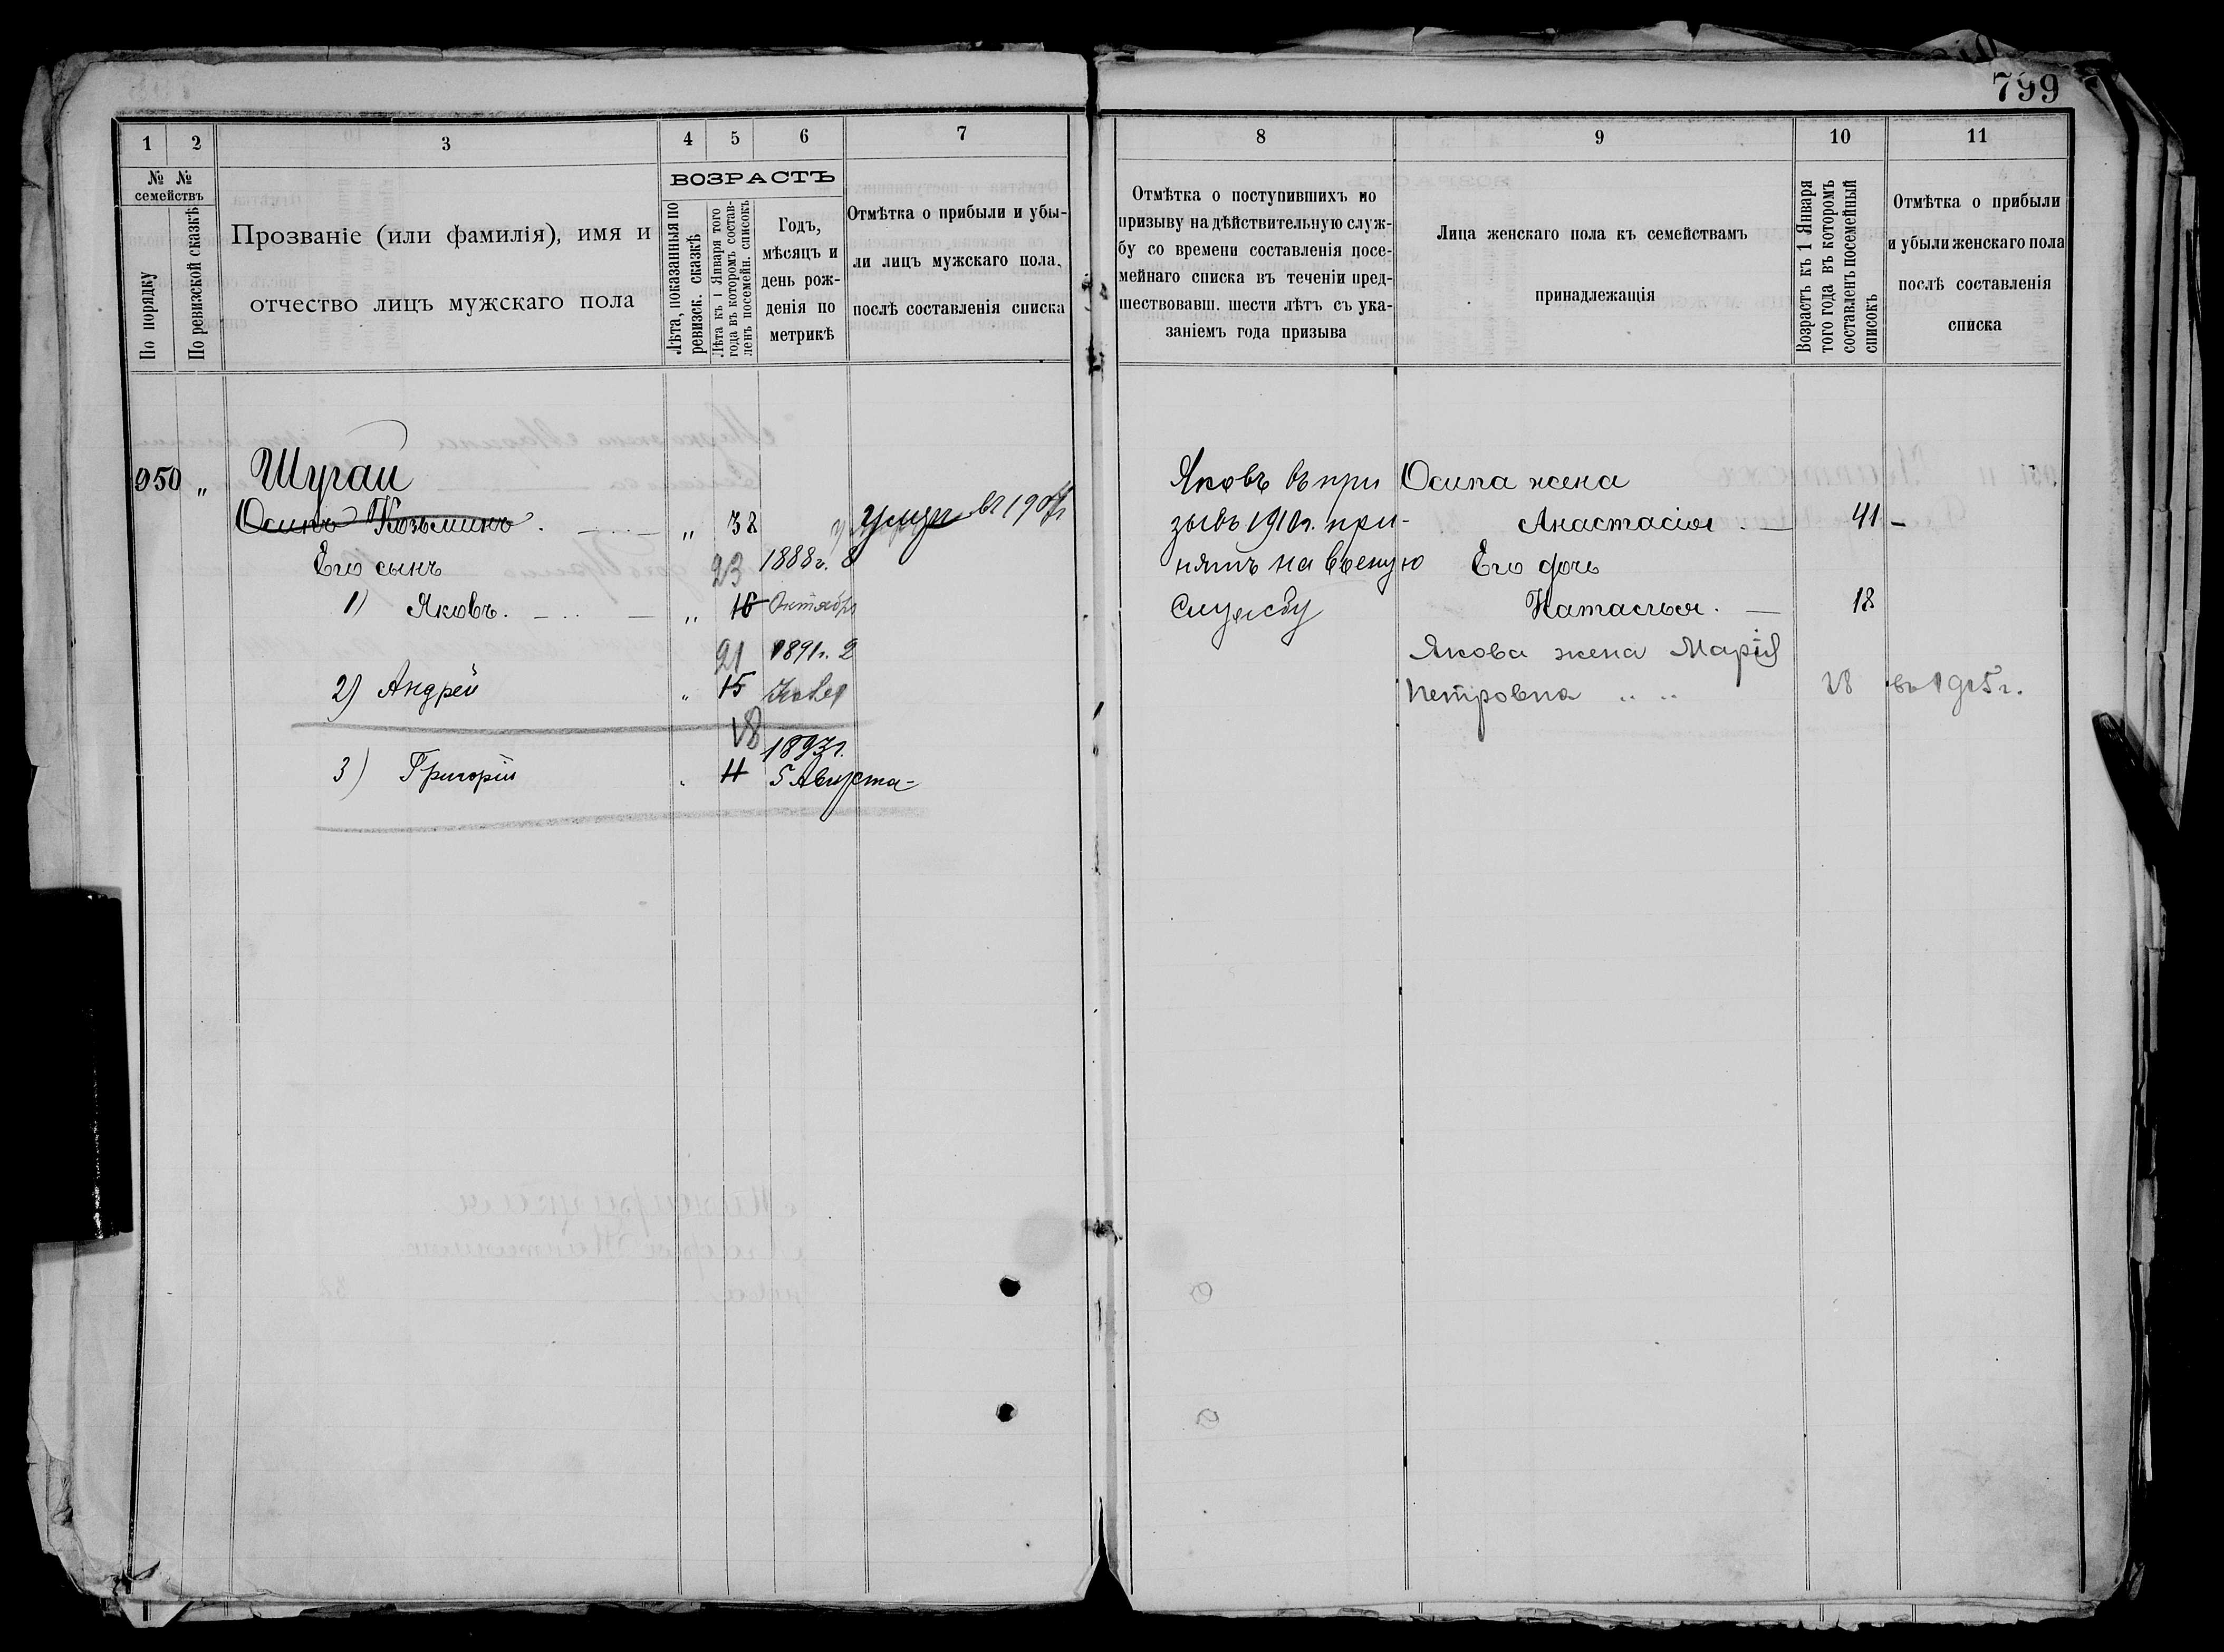 799
1 2 3 4 5 6 7
№ № семействъ
По порядку
По ревизской сказкѣ
Прозваніе (или фамилія), имя и
отчество лицъ мужскаго пола
ВОЗРАСТЪ
Лѣта, показанныя по
ревизск. сказкѣ
Лѣта къ 1 Января того
года въ которомъ состав-
ленъ посемейн. списокъ
Годъ,
мѣсяцъ и
день рож-
денія по
метрикѣ
Отмѣтка о прибыли и убы-
ли лицъ мужскаго пола,
послѣ составленія списка
950 „ Шуган
Осипъ Козьминъ „ 38 умеръ въ 190
Его сынъ 23 1888г. 8
1) Яковъ. „ 16 Октября
21 1891г. 2
2) Андрей „ 15
18 1893г.
3) Григорій 11 5 Августа
8 9 10 11
Отмѣтка о поступившихъ по
призыву на дѣйствительную служ-
бу со времени составленія посе-
мейнаго списка въ теченіи пред-
шествовавш. шести лѣтъ съ ука-
заніемъ года призыва
Лица женскаго пола къ семействамъ
принадлежащія
Возрастъ къ 1 Января
того года въ которомъ
составленъ посемейный
списокъ
Отмѣтка о прибыли
и убыли женскаго пола
послѣ составленія
списка
Яковъ въ при
зывъ 1910г. при-
нятъ на военую
Службу
Осипа жена
Анастасія 41
Его дочь
Наталья 18
Якова жена Марія
Петровна 28 въ 1915г.